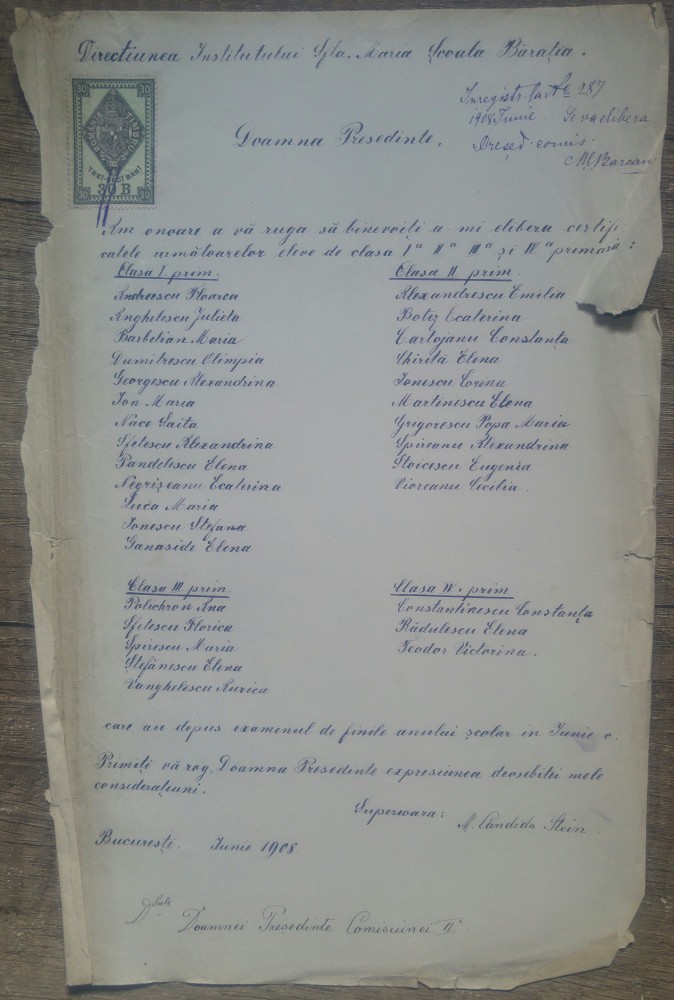 Directiunea Institutului Sfta. Maria Școala Bărația.
30 30
ROMANIA TIMBRU
30 B
30 30
Inregistr. la № 287
1908 Iunie. Se va elibera
Președ. comis.
Doamna Presedinte,
Am onoare a vă ruga să binevoiți a-mi elibera certifi
catele următoarelor eleve de clasa Iª IIª IIIª și IVª primară:
Clasa I prim.
Andreescu Floarea
Anghelescu Julieta
Barbelian Maria
Dumitrescu Olimpia
Georgescu Alexandrina
Ion Maria
Nace Saita
Sfetescu Alexandrina
Pandelescu Elena
Negrișeanu Ecaterina
Luca Maria
Ionescu Stefana
Ganaside Elena
Clasa II prim
Alexandrescu Emilia
Botez Ecaterina
Cartojanu Constanța
Chiriță Elena
Ionescu Corina
Martinescu Elena
Grigorescu Popa Maria
Spireanu Alexandrina
Stoicescu Eugenia
Vioreanu Cecilia.
Clasa III prim.
Polichron Ana
Sfetescu Florica
Spirescu Maria
Ștefănescu Elena
Vanghelescu Aurica
Clasa IV. prim
Constantinescu Constanța
Rădulescu Elena
Teodor Victorina.
care au depus examenul de finile anului școlar in Iunie c.
Primiți vă rog, Doamna Presedinte expresiunea deosebitei mele
considerațiuni.
Superioara:
M. Candida Stein
București. Iunie 1908
Doamnei Presedinte Comisiunei II